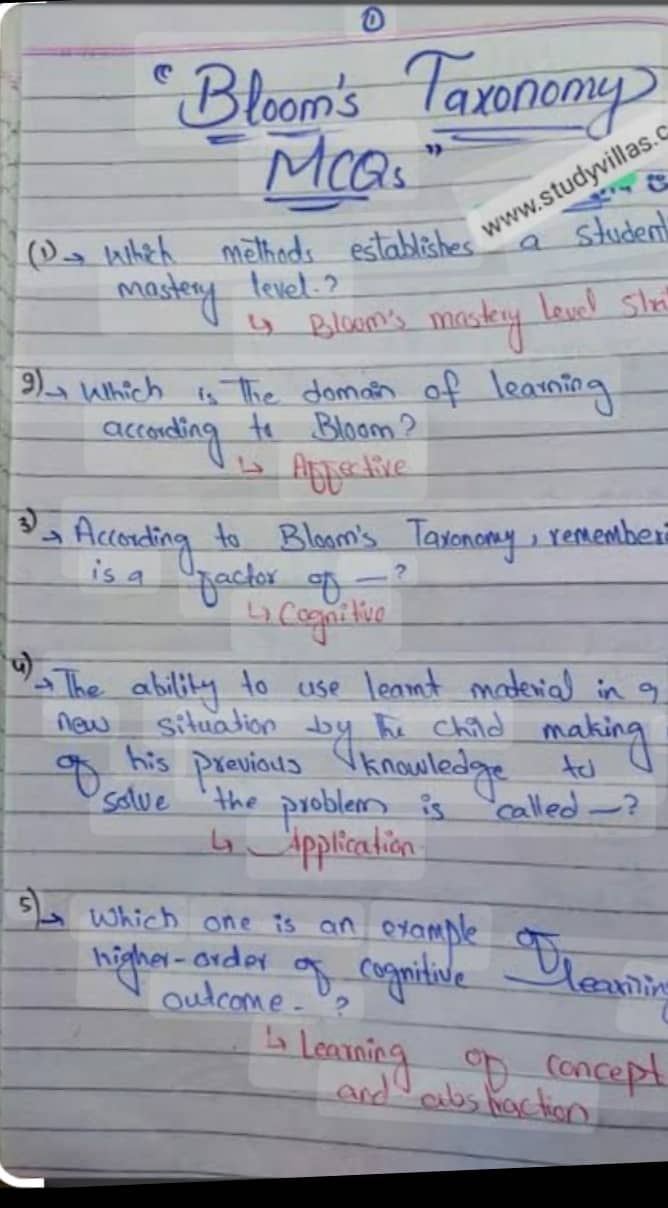 ①
"Bloom's Taxonomy
MCQs"
www.studyvillas.c
(1)→ which methods establishes a student
mastery level.?
↳ Bloom's mastery level
2)→ Which is The domain of learning
according to Bloom?
↳ Affective
3)→ According to Bloom's Taxonomy, rememberi
is a factor of —?
↳ Cognitive
4)→ The ability to use learnt material in a
new situation by the child making
of his previous knowledge to
solve the problem is called —?
↳ Application
5)→ Which one is an example of
higher-order of cognitive learning
outcome- ?
↳ Learning of concept
and abstraction